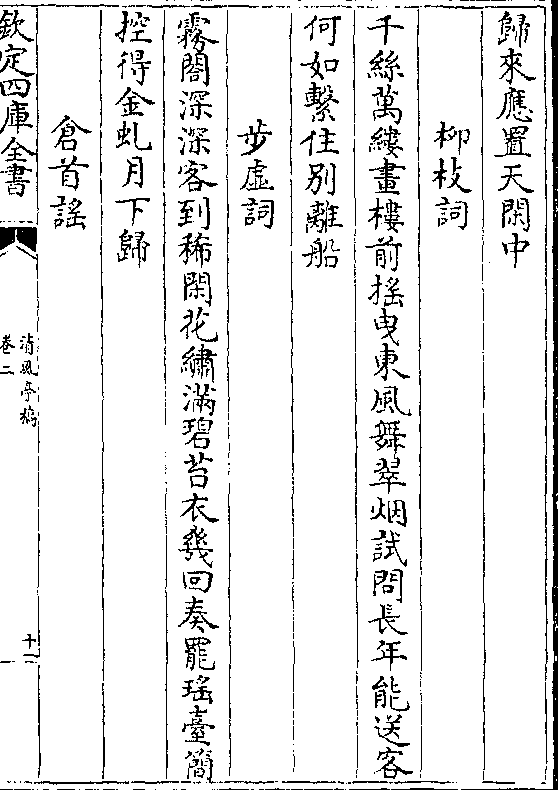 歸來應置天閑中
柳枝詞
千絲萬縷畫樓前揺曳東風舞翠烟試問長年能送客
何如繫住别離船
步虛詞
霧閣深深客到稀閑花繡滿碧苔衣幾回奏罷瑤臺簡
控得金虬月下歸
倉首謡
欽定四庫全書
清風亭稿
卷二
十一